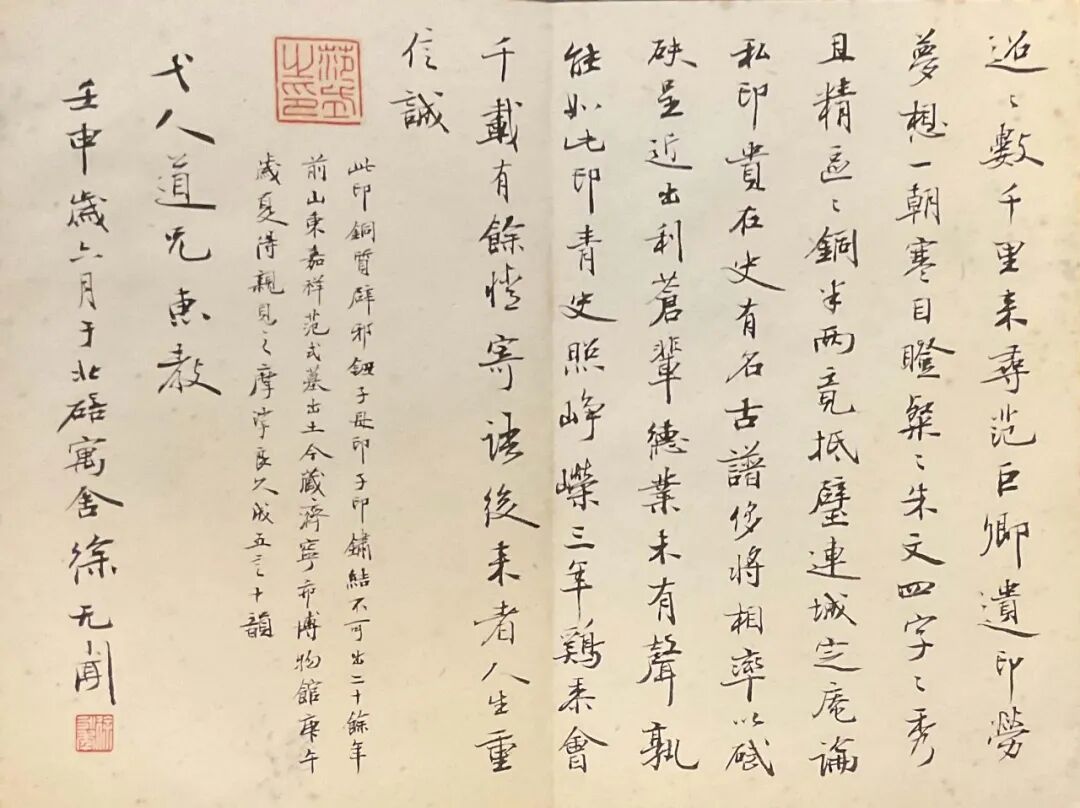 迢〻數千里来尋范巨卿遺印勞
夢想一朝寒目瞪粲〻朱文四字〻秀
且精區〻銅半兩竟抵璧連城定庵論
私印貴在史有名古譜侈將相率以碔
砆呈近出利蒼輩德業未有聲孰
能如此印青史照崢嶸三年鷄黍會
千載有餘情寄語後来者人生重
信誠
此印銅質辟邪鈕子母印子印鏽結不可出二十餘年
前山東嘉祥范式墓出土今藏濟寧市博物館庚午
歲夏得親見之摩挲良久成五言十韻
弋人道兄惠教
壬申歲六月于北碚寓舍徐无聞